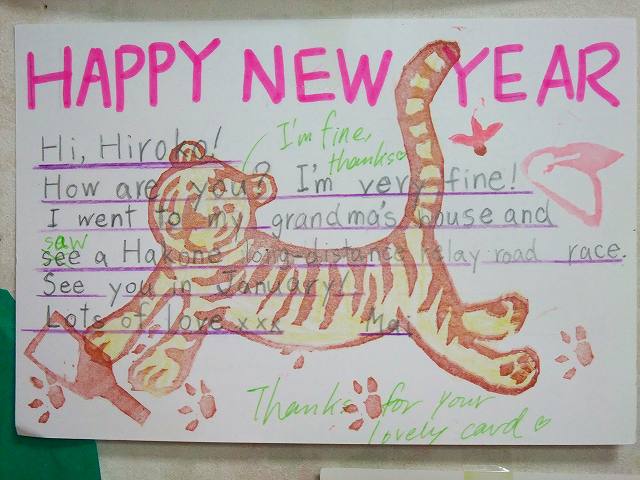 HAPPY NEW YEAR
Hi, Hiroko!
I'm fine,
thanks♡
How are you? I'm very fine!
I went to my grandma's house and
saw
see a Hakone long-distance relay road race.
See you in January!
Lots of love xxx Mai
Thanks for your
lovely card ♡